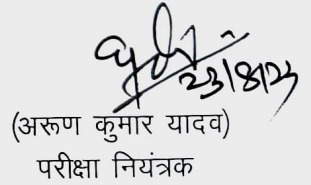 23/8/23
(अरूण कुमार यादव)
परीक्षा नियंत्रक